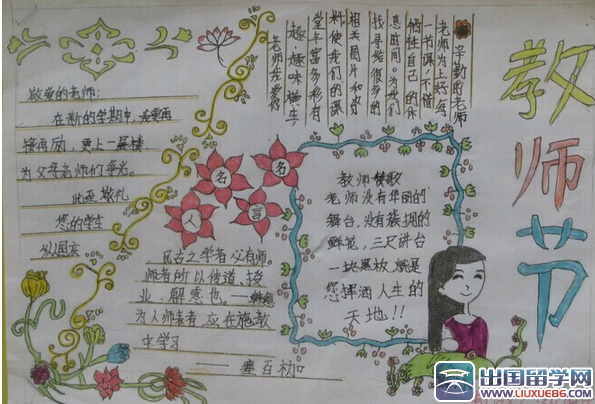 教师节
辛勤的老师
老师为上好每
一节课,不惜
牺牲自己的休
息时间。为我们
找寻给很多的
相关图片和材
料,使我们的课
堂丰富多彩,有
趣,趣味横生
老师我爱你
敬爱的老师:
在新的学期中,我要再
接再励,更上一层楼,
为父母老师们争光。
此至敬礼
您的学生
名
名
人
言
民古之学者必有师。
师者所以传道,授
业,解惑也。——韩愈
为人师表者,应在施教
中学习
教师赞歌
老师没有华丽的
舞台,没有簇拥的
鲜花,三尺讲台
一块黑板,就是
您挥洒人生的
天地!!
出国留学网
WWW.LIUXUE86.COM